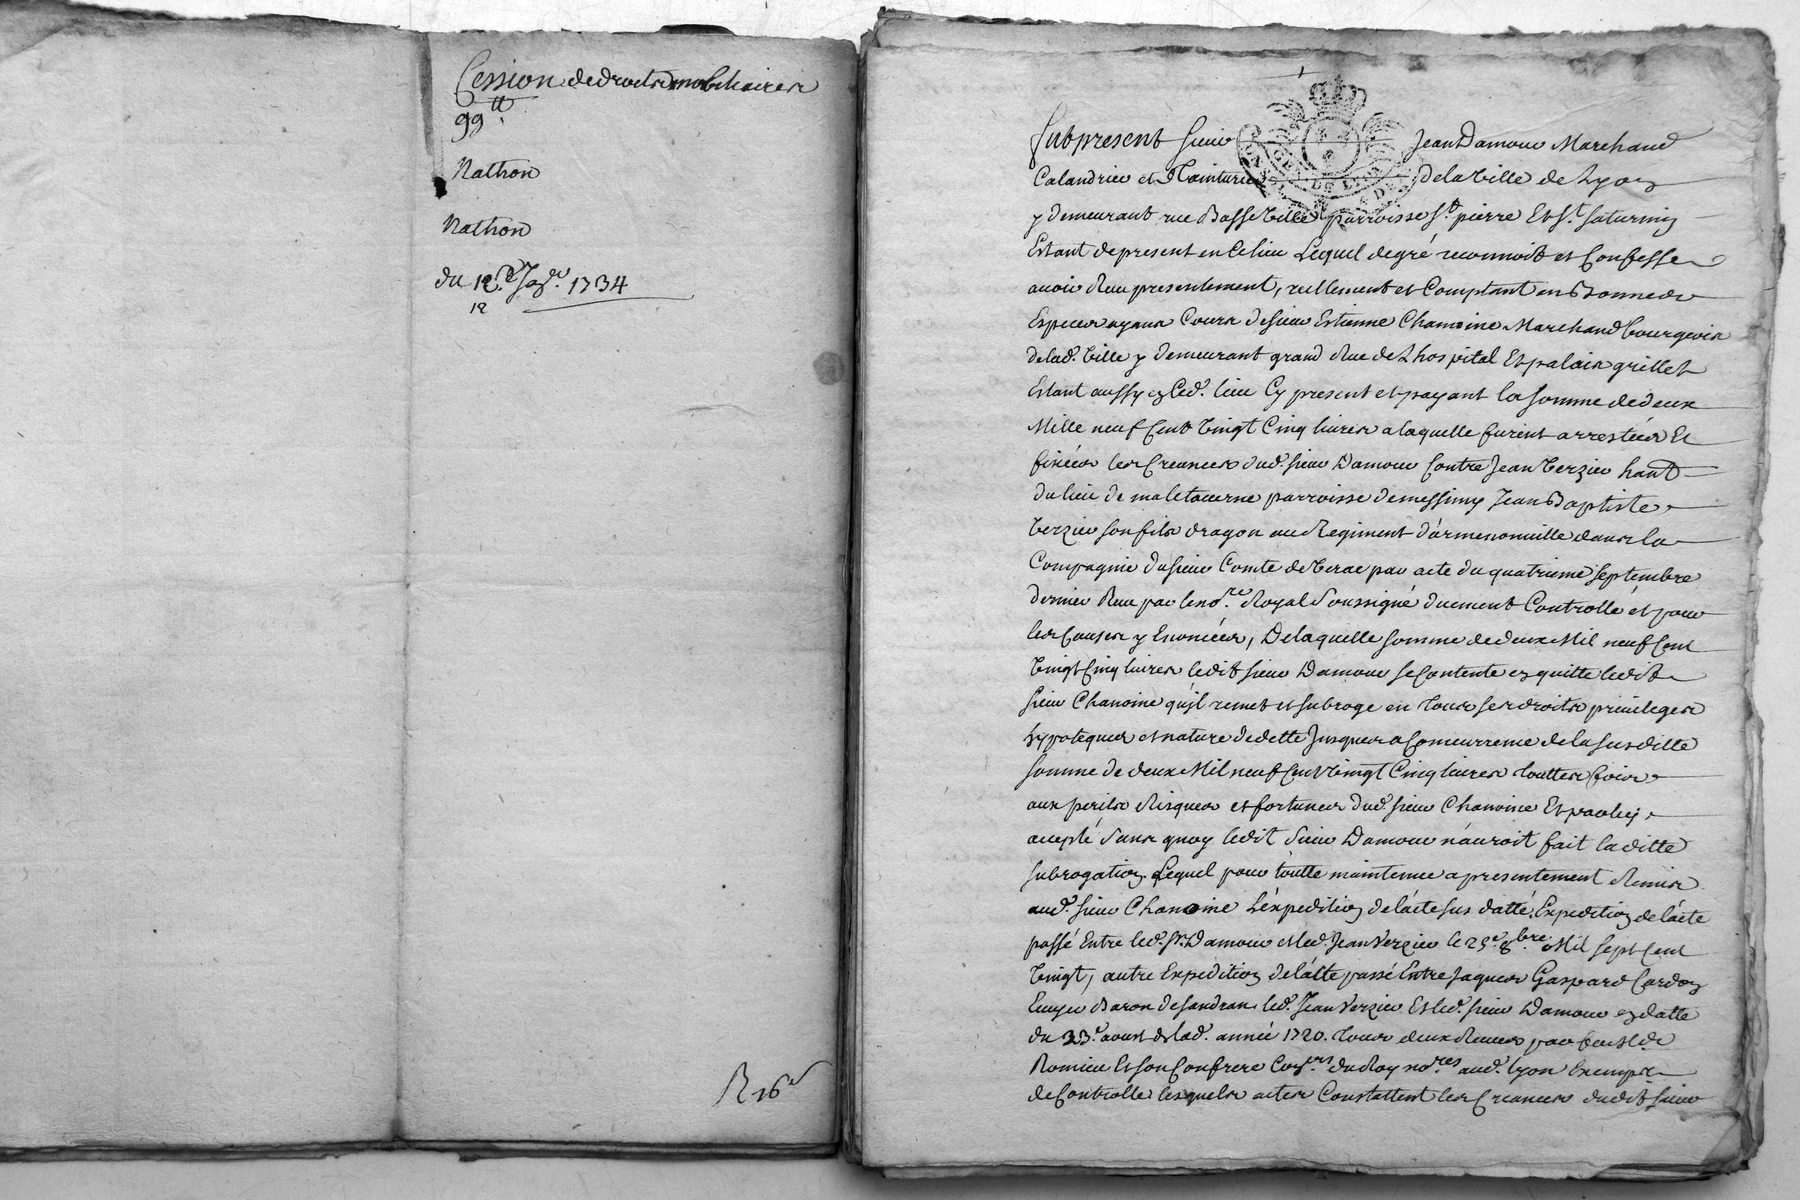 Cession de droits mobiliaires
99 tt.
Nathon
Nathon
du 12.e Ja.er 1734
12
R 16 s
Fut present sieur Jean Damour Marchand
Calandrier et Tainturier de la Ville de Lyon
y demeurant rue Basseville parroisse St. pierre Et St. saturnin
Estant de present en Ce lieu Lequel de gré reconnoit et Confesse
avoir Reçu presentement, reellement et Comptant en Bonnes
Especes ayans Cours de sieur Estienne Chanoine Marchand bourgeois
de lad. Ville y demeurant grand Rue de Lhospital Et palais grillet
Estant aussy en Led. lieu Cy present et payant la somme de deux
Mille neuf Cent Vingt Cinq livres a laquelle furent arrestées Et
fixées les Creances dud. sieur Damour Contre Jean Verzieu hant
du lieu de maletaverne parroisse de messimy Jean Baptiste
Verzieu son fils dragon au Regiment d'armenonville dans la
Compagnie du sieur Comte de Verac par acte du quatrieme septembre
dernier Reçu par le no.re Royal Soussigné duement Controllé et pour
les Causes y Enoncées, De laquelle somme de deux Mil neuf Cent
Vingt Cinq livres ledit sieur Damour se Contente en quitte ledit
sieur Chanoine qu'il remet et subroge en tous ses droits privileges
hypoteques et nature de dette Jusques a Concurrence de la susditte
somme de deux Mil neuf Cent Vingt Cinq livres touttes fois
aux perils Risques et fortunes dud. sieur Chanoine Et par luy
accepté sans quoy ledit Sieur Damour n'auroit fait laditte
subrogation Lequel pour toutte maintenue a presentement Remis
aud. sieur Chanoine L'expedition de l'acte sus datté, Expedition de l'acte
passé Entre led. Sr. Damour et led. Jean Verzieu le 25.e 8.bre Mil sept Cent
Vingt, autre Expedition de l'acte passé Entre Jaques Gaspard Cardon
Ecuyer Baron de sandran led. Jean Verzieu Et led. sieur Damour en datte
du 23.e aoust de lad. année 1720. tous deux Reçus par
Romieu Et son Confrere Con.ers du Roy no.res aud. Lyon Exempts
de Controlle lesquels actes Constattent les Creances dudit sieur